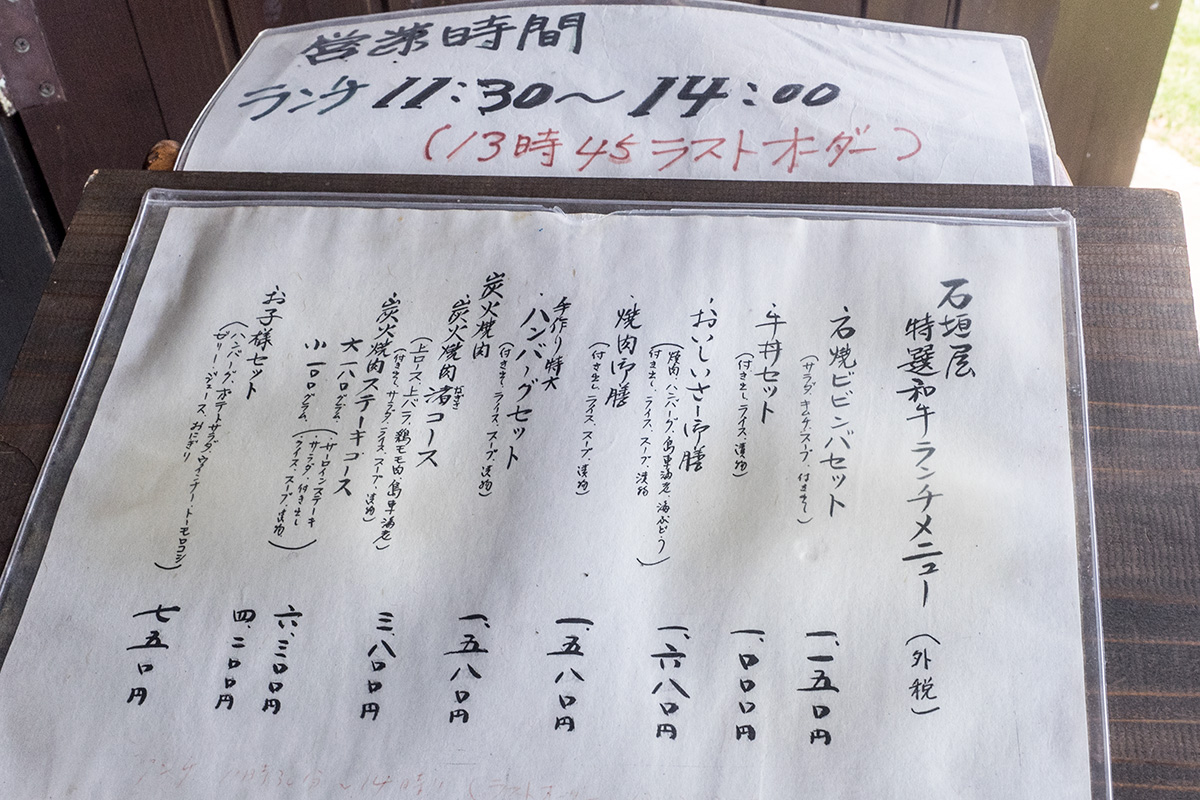 営業時間
ランチ 11:30〜14:00
(13時45ラストオーダー)
石垣屋
特選和牛ランチメニュー (外税)
石焼ビビンバセット 一、一五〇円
(サラダ、キムチ、スープ、付き出し)
牛丼セット 一、〇〇〇円
(付き出し、ライス、漬物)
おいしいさー御膳 一、六八〇円
(焼肉、ハンバーグ、島車海老、海ぶどう
付き出し、ライス、スープ、漬物)
焼肉御膳 一、五八〇円
(付き出し、ライス、スープ、漬物)
手作り特大
ハンバーグセット 一、五八〇円
(付き出し、ライス、スープ、漬物)
炭火焼肉
炭火焼肉 渚コース 三、八〇〇円
なぎさ
(上ロース、上バラ、鶏モモ肉、島車海老
付き出し、サラダ、ライス、スープ、漬物)
炭火焼肉ステーキコース
大 一八〇グラム 六、三〇〇円
小 一〇〇グラム 四、二〇〇円
(サーロインステーキ
サラダ、付き出し
ライス、スープ、漬物)
お子様セット 七五〇円
(ハンバーグ、ポテトサラダ、ウィンナー、トーモロコシ
ゼリー、ジュース、おにぎり)